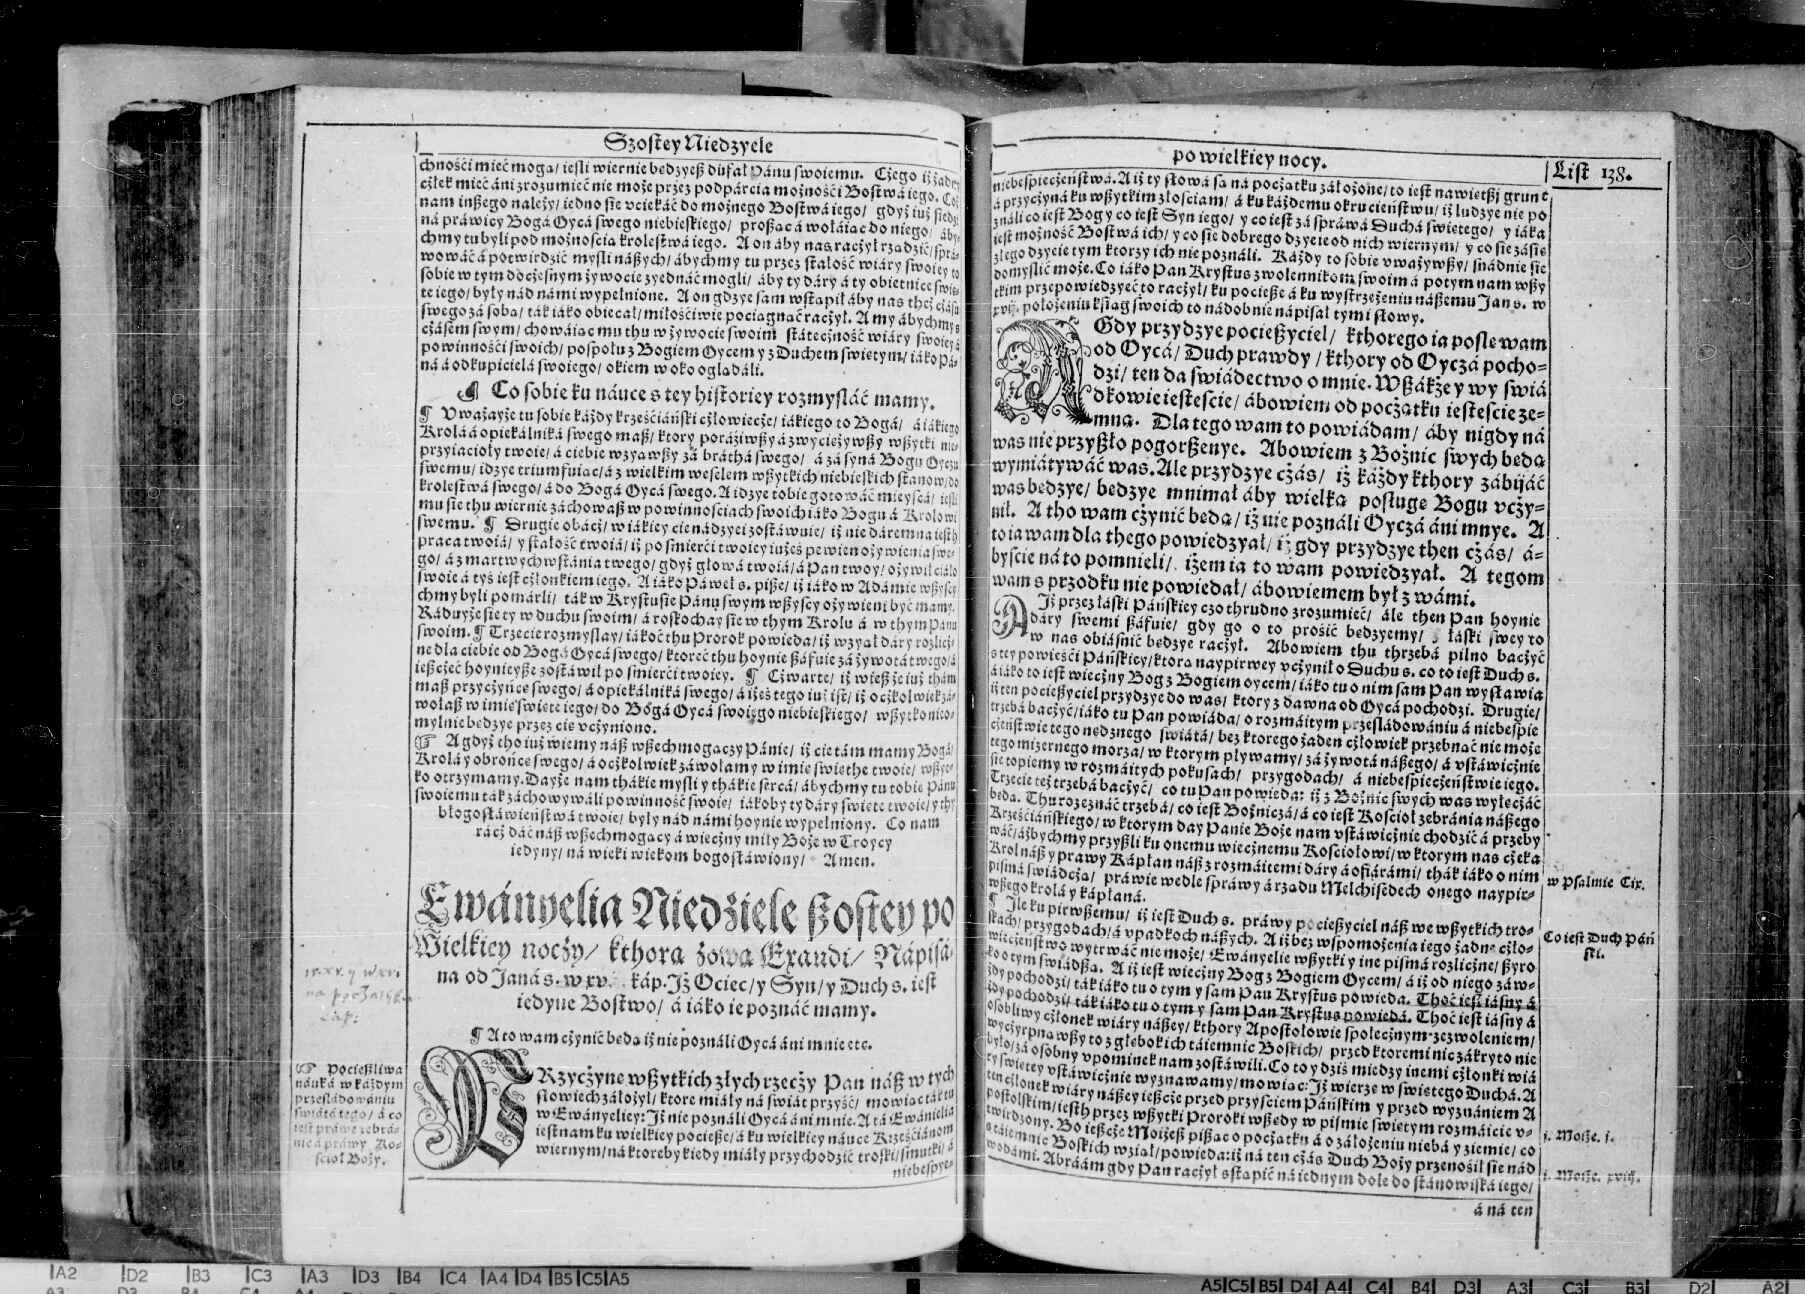 Szostey Niedzyele
chnośći mieć moga/ iesli wiernie bedzyeß dufał Pánu swoiemu. Cżego iż żaden
cżłek mieć áni zrozumieć nie może przez podpárcia możnośći Bostwá iego. Coż
nam inßego należy/ iedno sie vciekáć do możnego Bostwá iego/ gdyż iuż siedzi
ná práwicy Bogá Oycá swego niebieskiego/ proßac á wołáiac do niego/ áby-
chmy tu byli pod możnoscia krolestwá iego. A on áby nas racżył rzadzić/ sprá-
wowáć á potwirdzić mysli náßych/ ábychmy tu przez stałość wiáry swoiey to
sobie w tym docżesnym żywocie zyednáć mogli/ áby ty dáry á ty obietnice swie-
te iego/ były nád námi wypełnione. A on gdzye sam wstąpił áby nas theż cżásu
swego zá soba/ ták iáko obiecał/ miłośćiwie pociągnáć racżył. A my ábychmy
cżásem swym/ chowáiac mu thu w żywocie swoim státecżność wiáry swoiey z
powinnośći swoich/ pospołu z Bogiem Oycem y z Duchem swietym/ iáko Pá-
ná á odkupicielá swoiego/ okiem w oko ogladáli.
¶ Co sobie ku náuce s tey historiey rozmysláć mamy.
¶ Vważayże tu sobie káżdy krześćiáński cżłowiecże/ iákiego to Bogá/ á iákiego
Krolá á opiekálniká swego maß/ ktory poráźiwßy á zwycieżywßy wßytki nie-
przyiacioły twoie/ á ciebie wzyawßy zá bráthá swego/ á zá syná Bogu Oycu
swemu/ idzye triumfuiac/ á z wielkim weselem wßytkich niebieskich stanow/ do
krolestwá swego/ á do Bogá Oycá swego. A idzye tobie gotowáć mieyscá/ iesli
mu sie thu wiernie záchowaß w powinnosciach swoich iáko Bogu á Krolowi
swemu. ¶ Drugie obácż/ w iákiey cie nádzyei zostáwuie/ iż nie dáremna iesth
praca twoiá/ y stałość twoiá/ iż po śmierći twoiey iużeś pewien ożywienia swe-
go/ á z martwychwstánia twego/ gdyż głowá twoiá/ á Pan twoy/ ożywił ciáło
swoie á tyś iest cżłonkiem iego. A iáko Páweł s. piße/ iż iáko w Adámie wßyscy
chmy byli pomárli/ ták w Krystusie Pánu swym wßyscy ożywieni być mamy.
Ráduyże sie ty w duchu swoim/ á roskochay sie w thym Krolu á w thym Pánu
swoim. ¶ Trzecie rozmyslay/ iákoć thu Prorok powieda/ iż wzyał dáry rozlicż-
ne dla ciebie od Bogá Oycá swego/ ktoreć thu hoynie ßáfuie zá żywotá twego/ á
ießcżeć hoynieyße zostáwił po śmierći twoiey. ¶ Cżwarte/ iż wießże iuż thám
maß przycżyńce swego/ á opiekálniká swego/ á iżeś tego iuż ist/ iż ocżkolwiek zá-
wołaß w imie swiete iego/ do Bogá Oycá swoiego niebieskiego/ wßytko nieo-
mylnie bedzye przez cie vcżyniono.
☞ A gdyż tho iuż wiemy náß wßechmogaczy Pánie/ iż cie tám mamy Bogá/
Krolá y obrońce swego/ á ocżkolwiek záwołamy w imie swiethe twoie/ wßyt-
ko otrzymamy. Dayże nam thákie mysli y thákie sercá/ ábychmy tu tobie Pánu
swoiemu ták záchowywáli powinność swoie/ iákoby ty dáry swiete twoie/ y thy
błogosłáwieństwá twoie/ były nád námi hoynie wypełniony. Co nam
rácż dáć náß wßechmogacy á wiecżny miły Boże w Troycy
iedyny/ ná wieki wiekom bogosłáwiony/ Amen.
Ewányelia Niedziele ßostey po
Wielkiey nocży/ kthora zowa Exaudi/ Nápisá-
na od Janá s. w xv. káp. Jż Ociec/ y Syn/ y Duch s. iest
iedyne Bostwo/ á iáko ie poznáć mamy.
¶ A to wam cżynić beda iż nie poználi Oycá áni mnie etc.
PRzycżyne wßytkich złych rzecży Pan náß w tych
słowiech záłożył/ ktore miáły ná swiát przyść/ mowiac ták tu
w Ewányeliey: Jż nie poználi Oycá áni mnie. A tá Ewánielia
iest nam ku wielkiey pocieße/ á ku wielkiey náuce Krześćiánom
wiernym/ ná ktoreby kiedy miáły przychodzić troski/ smutki/ á
niebespye-
na początku
Cap:
☞ Pocießliwa
náuká w káżdym
prześládowániu
swiátá tego/ á co
iest práwe zebrá-
nie á práwy Ko-
ścioł Boży.
po wielkiey nocy.
List 138.
niebespiecżeństwá. A iż ty słowá sa ná pocżatku záłożone/ to iest nawietßj grunt
á przycżyná ku wßytkim złosciam/ á ku káżdemu okrucieństwu/ iż ludzye nie po
ználi co iest Bog y co iest Syn iego/ y co iest zá spráwá Duchá swietego/ y iáka
iest możność Bostwá ich/ y co sie dobrego dzyeie od nich wiernym/ y co sie zásie
złego dzyeie tym ktorzy ich nie poználi. Káżdy to sobie vważywßy/ snádnie sie
domyslić może. Co iáko Pan Krystus zwolennikom swoim á potym nam wßy
tkim przepowiedzyeć to racżył/ ku pocieße á ku wystrzeżeniu náßemu Jan s. w
xvij. położeniu ksiag swoich to nadobnie nápisał tymi słowy.
A Gdy przydzye pocießyciel/ kthorego ia posle wam
od Oycá/ Duch prawdy/ kthory od Oyczá pocho-
dzi/ ten da swiádectwo o mnie. Wßákże y wy swiá
dkowie iestescie/ ábowiem od pocżatku iestescie ze-
mna. Dla tego wam to powiádam/ áby nigdy ná
was nie przyßło pogorßenye. Abowiem z Bożnic swych beda
wymiátywáć was. Ale przydzye cżás/ iż káżdy kthory zábijáć
was bedzye/ bedzye mnimał áby wielka posługe Bogu vcży-
nil. A tho wam cżynić beda/ iż nie poználi Oyczá áni mnye. A
to ia wam dla thego powiedzyał/ iż gdy przydzye then cżás/ á-
byscie ná to pomnieli/ iżem ia to wam powiedzyał. A tegom
wam s przodku nie powiedał/ ábowiemem był z wámi.
A Jż przez łáski Páńskiey czo thrudno zrozumieć/ ále then Pan hoynie
dáry swemi ßáfuie/ gdy go o to prosić bedzyemy/ z łáski swey to
w nas obiáśnić bedzye racżył. Abowiem thu thrzebá pilno bacżyć
s tey powieśći Páńskiey/ ktora naypirwey vcżynił o Duchu s. co to iest Duch s.
á iáko to iest wiecżny Bog z Bogiem oycem/ iáko tu o nim sam Pan wystawia
iż ten pocießyciel przydzye do was/ ktory z dawná od Oycá pochodzi. Drugie/
trzebá bacżyć/ iáko tu Pan powiáda/ o rozmáitym prześládowániu á niebespie
cżeństwie tego nedznego swiátá/ bez ktorego żaden cżłowiek przebnáć nie może
tego mizernego morzá/ w ktorym pływamy/ zá żywotá náßego/ á vstáwicżnie
sie topiemy w rozmáitych pokusach/ przygodach/ á niebespiecżeństwie iego.
Trzecie też trzebá bacżyć/ co tu Pan powieda: iż z Bożnic swych was wylecżáć
beda. Thu rozeznáć trzebá/ co iest Bożnicżá/ á co iest Koscioł zebránia náßego
Krześćiáńskiego/ w ktorym day Pánie Boże nam vstáwicżnie chodzić á przeby
wáć/ áżbychmy przyßli ku onemu wiecżnemu Kościołowi/ w ktorym nas cżeka
Krol náß y prawy Kápłan náß z rozmáitemi dáry á ofiárámi/ thák iáko o nim
pismá swiádcża/ práwie wedle spráwy á rzadu Melchisedech onego naypir-
wßego krolá y kápłaná.
¶ Jle ku pirwßemu/ iż iest Duch s. práwy pocießyciel náß we wßytkich tro-
skach/ przygodach/ á vpadkoch náßych. A iż bez wspomożenia iego żadne cżło-
wiecżeństwo wytrwáć nie może/ Ewányelie wßytki y ine pismá rozlicżne/ ßyro
ko o tym swiádßa. A iż iest wiecżny Bog z Bogiem Oycem/ á iż od niego záw-
żdy pochodzi/ ták iáko tu o tym y sam Pan Krystus powieda. Thoć iest iásny á
żdy pochodzi/ ták iáko tu o tym y sam Pan Krystus powieda. Thoć iest iásny á
osobliwy cżłonek wiáry náßey/ kthory Apostołowie społecżnym zezwoleniem/
wycżyrpnawßy to z głebokich táiemnic Boskich/ przed ktoremi nic zákryto nie
było/ zá osobny vpominek nam zostáwili. Co to y dziś miedzy inemi cżłonki wiá
ry swietey vstáwicżnie wyznawamy/ mowiac: Jż wierze w swietego Duchá. A
ten cżłonek wiáry náßey ießcże przed przysciem Páńskim y przed wyznániem A
postolskim/ iesth przez wßytki Proroki wßedy w pismie swietym rozmáicie v-
twirdzony. Bo ießcże Moiżeß pißac o pocżatku á o záłożeniu niebá y ziemie/ co
s táiemnic Boskich wział/ powieda: iż ná ten cżás Duch Boży przenosił sie nád
wodámi. Abráám gdy Pan racżył sstapić ná iednym dole do stánowiská iego/
á ná ten
w Psalmie Cix.
Co iest Duch Páń
ski.
j. Moiże. j.
j. Moiże. xviij.